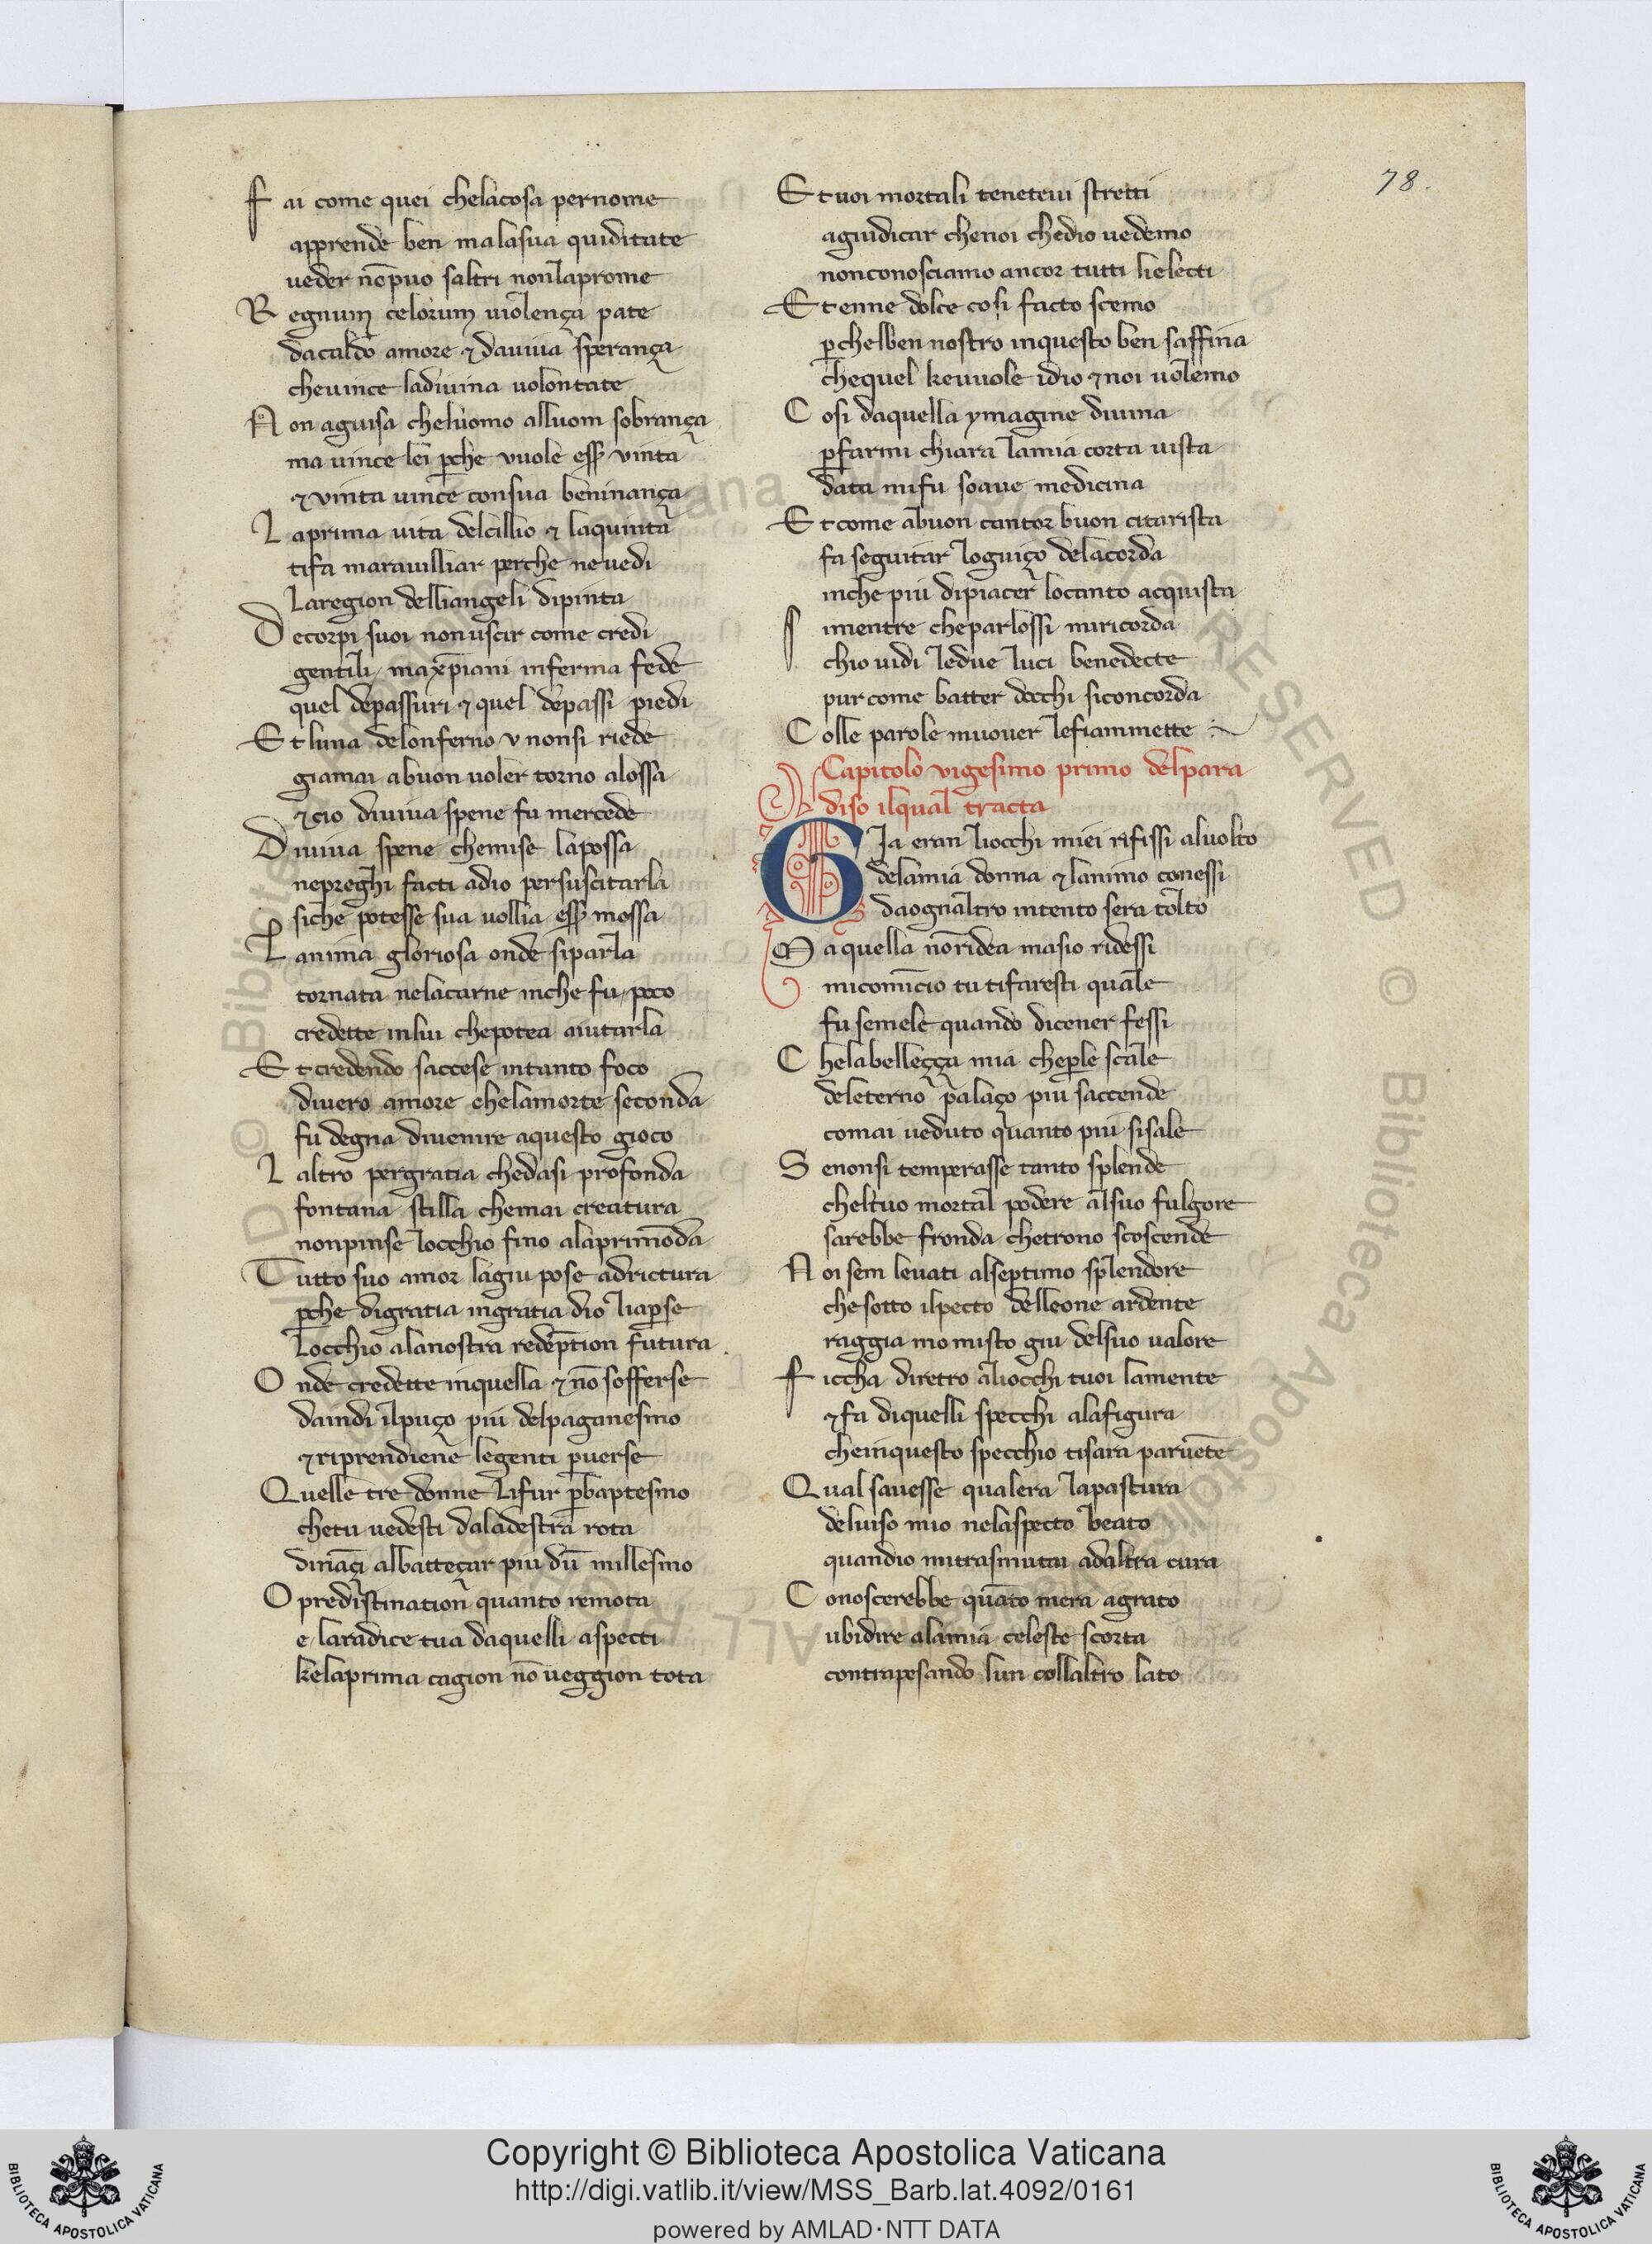 78.
Fai come quei chelacosa pernome
apprende ben malasua quiditate
ueder nōpuo saltri nonlaprome
Regnum celorum uiolença pate
dacaldo amore ⁊ dauiua sperança
cheuince ladiuina uolontate
Non aguisa cheluomo alluom sobrança
ma uince lei ꝑche vuole eſſ vinta
⁊ vinta uince consua beninança
Laprima uita delcillio ⁊ laquinta
tifa marauilliar perche neuedi
Laregion delliangeli dipinta
Decorpi suoi nonuscir come credi
gentili maxp̄iani inferma fede
quel depassuri ⁊ quel depassi piedi
Et luna delonferno v nonsi riede
giamai abuon uoler torno alossa
⁊ cio diuiua spene fu mercede
Diuiua spene chemise lapossa
nepreghi facti adio persuscitarla
siche potesse sua uollia eſſ mossa
Lanima gloriosa onde siparla
tornata nelacarne inche fu poco
credette inlui chepotea aiutarla
Et credendo saccese intanto foco
diuero amore chelamorte seconda
fu degna diuenire aquesto gioco
Laltro pergratia chedasi profonda
fontana stilla chemai creatura
nonpinse locchio fino alaprimōda
Tutto suo amor lagiu pose adrictura
ꝑche digratia ingratia dio liaꝑse
Locchio alanostra redēption futura
Onde credette inquella ⁊ nō sofferse
daindi ilpuço piu delpaganesmo
⁊ riprendiene legenti ꝑuerse
Quelle tre donne lifur ꝑbaptesmo
chetu uedesti daladestra rota
dināçi albatteçar piu dū millesmo
O predistination quanto remota
e laradice tua daquelli aspecti
kelaprima cagion nō ueggion tota
Et uoi mortali teneteui stretti
agiudicar chenoi chedio uedemo
nonconosciamo ancor tutti lielecti
Et enne dolce cosi facto scemo
ꝑchelben nostro inquesto ben saffina
chequel keuuole idio ⁊ noi uolemo
Cosi daquella ymagine diuina
ꝑfarmi chiara lamia corta uista
data mifu soaue medicina
Et come abuon cantor buon citarista
fa seguitar loguiço delacorda
inche piu dipiacer locanto acquista
Imentre cheparlossi miricorda
chio uidi ledue luci benedecte
pur come batter docchi siconcorda
Colle parole muouer lefiammette
Capitolo vigesimo primo delpara
diso ilqual tracta
Gia eran liocchi miei rifissi aluolto
delamia donna ⁊ lanimo conessi
daognaltro intento sera tolto
Maquella nōridea masio ridessi
micomīcio tu tifaresti quale
fu semele quando dicener fessi
Chelabelleçça mia cheꝑle scale
deleterno palaço piu saccende
comai ueduto quanto piu sisale
Senonsi temperasse tanto splende
cheltuo mortal podere alsuo fulgore
sarebbe fronda chetrono scoscende
Noi sem leuati alseptimo splendore
chesotto ilpecto delleone ardente
raggia mo misto giu delsuo ualore
Ficcha diretro aliocchi tuoi lamente
⁊ fa diquelli specchi alafigura
cheinquesto specchio tisara paruēte
Qual sauesse qualera lapastura
deluiso mio nelaspecto beato
quandio mitrasmutai adaltra cura
Conoscerebbe quāto mera agrato
ubidire alamia celeste scorta
contrapesando lun collaltro lato
Copyright © Biblioteca Apostolica Vaticana
http://digi.vatlib.it/view/MSS_Barb.lat.4092/0161
powered by AMLAD·NTT DATA
BIBLIOTECA APOSTOLICA VATICANA
BIBLIOTECA APOSTOLICA VATICANA